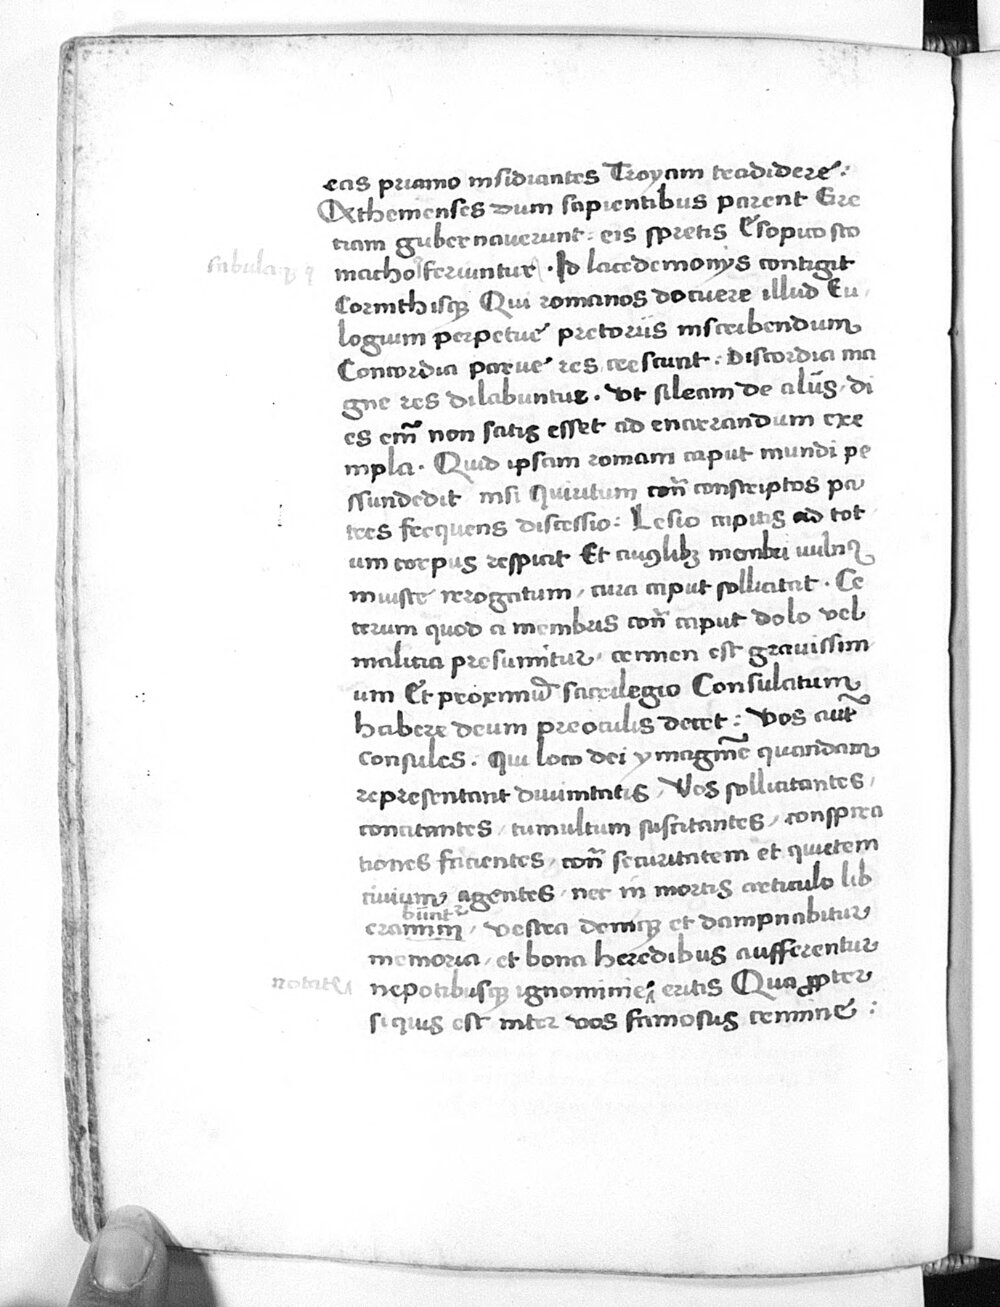 eas priamo insidiantes Troyam tradidere :
Athemenses dum sapientibus parent Gre
tiam gubernauerunt : eis spretis Esopico sto
macho feriuntur . Id lacedemonijs contigit
Corinthisq; Qui romanos docuere illud Eu
logium perpetue pretoriis inscribendum
Concordia parue res crescunt : Discordia ma
gne res dilabuntur . Vt sileam de alijs , di
es em̃ non satis esset ad enarrandum exe
mpla . Quid ipsam romam caput mundi pe
ssundedit nisi quiritum con̄ conscriptos pa
tres frequens discessio : Lesio capitis ad tot
um corpus respicit Et cuiuslibꝫ membri uulnꝰ
caput sollicitat . Ce
terum quod a membris con̄ caput dolo vel
malitia presumitur , crimen est grauissim
um Et proximū sacrilegio Consulatum
habere deum preoculis decet : Vos aut̄
Consules . Qui loco dei ymagīne quandam
representant diuinitatis , Vos sollicitantes ,
concitantes , tumultum suscitantes , conspira
tiones facientes , con̄ securitatem et quietem
ciuium agentes , nec in mortis articulo lib
bunt᷑
, vestra deniqꝫ et dampnabitur
memoria , et bona heredibus aufferentur
nepotibusqꝫ ignominie eritis Quapropter
siquis est inter vos famosus crimine :